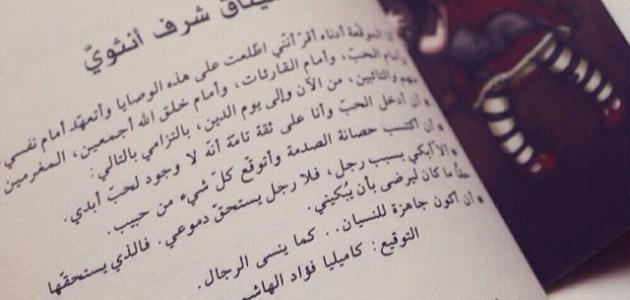 ميثاق شرف أنثويّ
الموقّعة أدناه أقرّ أنّني اطّلعت على هذه الوصايا وأتعهّد أمام نفسي
وأمام الحبّ، وأمام القارئات، وأمام خلق الله أجمعين، المغرمين
منهم والتائبين، من الآن وإلى يوم الدين، بالتزامي بالتالي:
• أن أدخل الحبّ وأنا على ثقة تامّة أنّه لا وجود لحبّ أبدي.
• أن أكتسب حصانة الصدمة وأتوقّع كلّ شيء من حبيب.
• ألا أبكي بسبب رجل، فلا رجل يستحقّ دموعي. فالذي يستحقّها
حقّاً ما كان ليرضى بأن يُبكيني.
• أن أكون جاهزة للنسيان.. كما ينسى الرجال.
التوقيع: كاميليا فؤاد الهاشم